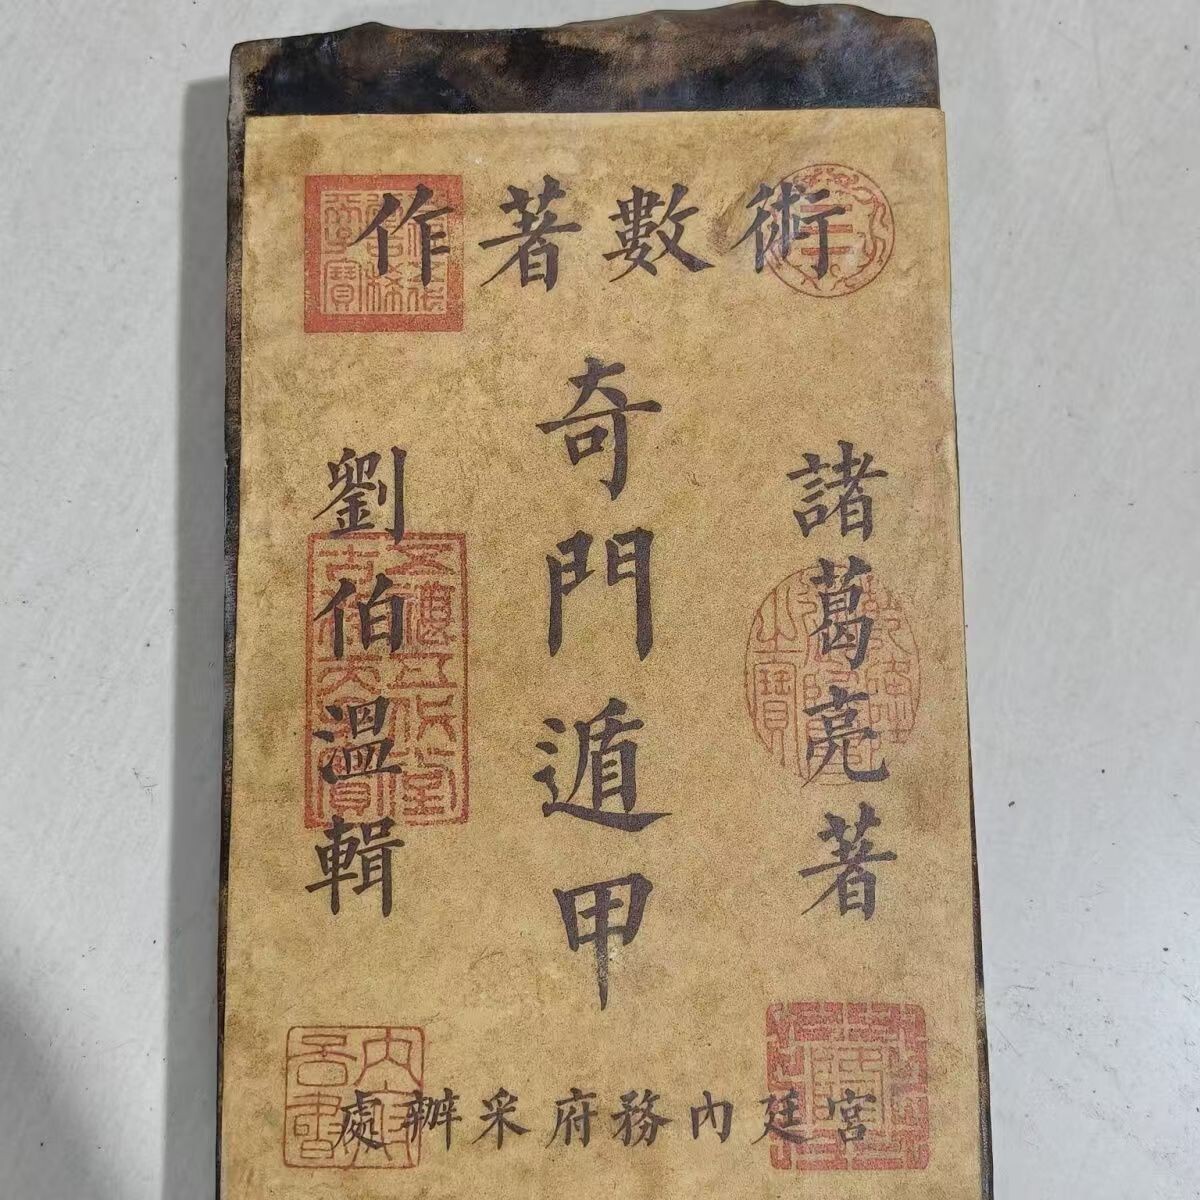 術數著作
諸葛亮著
奇門遁甲
劉伯溫輯
宮廷內務府采辦處